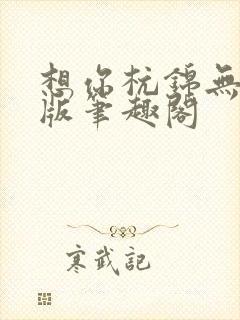 想你杭錦無
版筆趣閣
寒武記